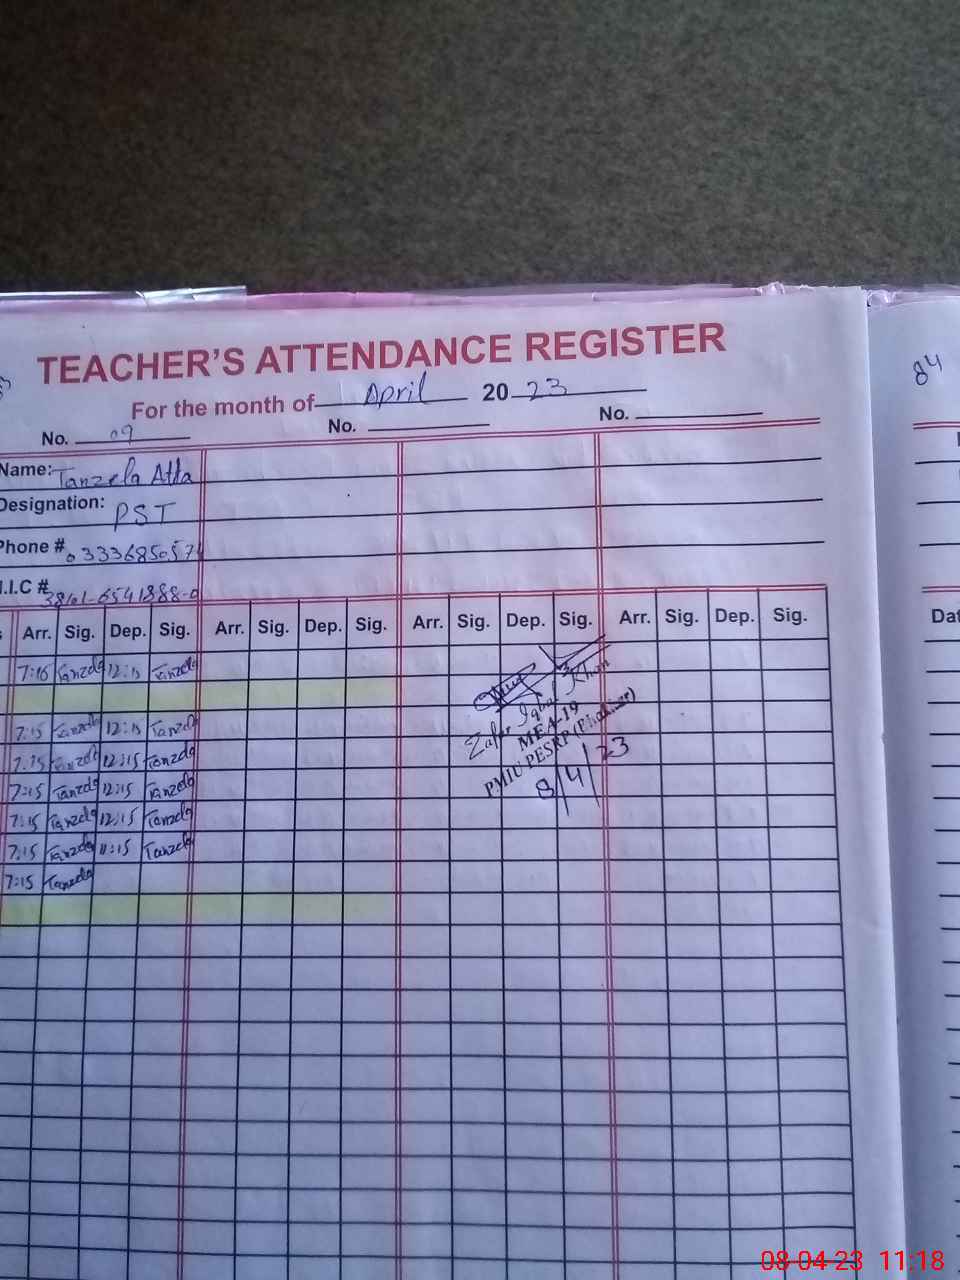 TEACHER'S ATTENDANCE REGISTER
For the month of April 2023
84
No. 09 No. No.
Name: Tanzela Atta
Designation: PST
Phone #
I.I.C #
Arr. Sig. Dep. Sig. Arr. Sig. Dep. Sig. Arr. Sig. Dep. Sig. Arr. Sig. Dep. Sig. Dat
Tanzela 12:15 Tanzela
7:15 Tanzela 12:15 Tanzela
7:15 Tanzela 12:15 Tanzela
7:15 Tanzela 12:15 Tanzela
7:15 Tanzela 12:15 Tanzela
7:15 Tanzela 11:15 Tanzela
7:15 Tanzela
Zafar Iqbal Khan
MEA-19
PMIU PESRP
8/4/23
08-04-23 11:18